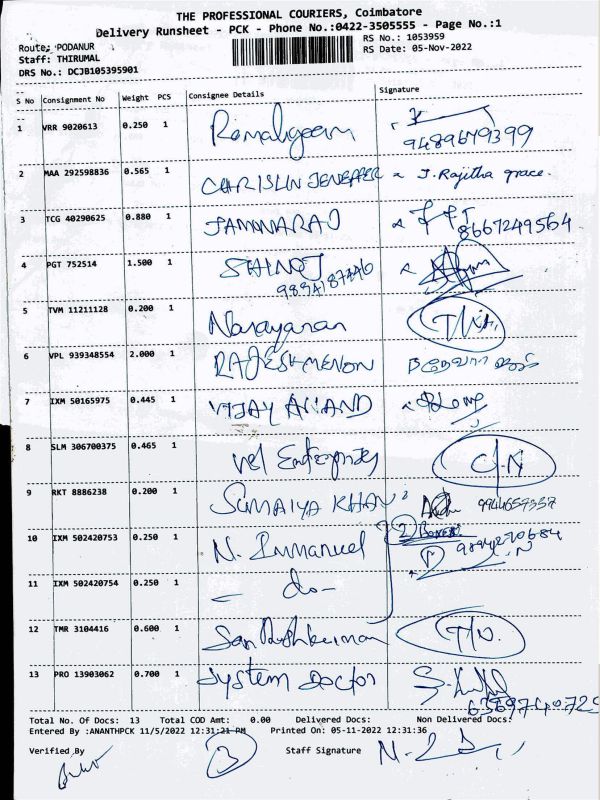 THE PROFESSIONAL COURIERS, Coimbatore
Delivery Runsheet - PCK - Phone No.:0422-3505555 - Page No.:1
Route: PODANUR
RS No.: 1053959
Staff: THIRUMAL
RS Date: 05-Nov-2022
DRS No.: DCJB105395901
S No Consignment No Weight PCS Consignee Details Signature
1 VRR 9020613 0.250 1
9489679399
2 MAA 292598836 0.565 1 CHRISLIN JENEFFER J. Rajitha grace.
3 TCG 40290625 0.880 1 JAMUNARAO
8667249564
4 PGT 752514 1.500 1 SHINOJ
9894187446
5 TVM 11211128 0.200 1 Narayanan
6 VPL 939348554 2.000 1 RAJESH MENON
7 IXM 50165975 0.445 1 VIJAY ANAND
8 SLM 306700375 0.465 1 Vel Enterprises
9 RKT 8886238 0.200 1 SUMAIYA KHAN
10 IXM 502420753 0.250 1 N. Immanuel
11 IXM 502420754 0.250 1 - do -
12 TMR 3104416 0.600 1
13 PRO 13903062 0.700 1 System Doctor
Total No. Of Docs: 13 Total COD Amt: 0.00 Delivered Docs: Non Delivered Docs:
Entered By :ANANTHPCK 11/5/2022 12:31:21 PM Printed On: 05-11-2022 12:31:36
Verified By Staff Signature